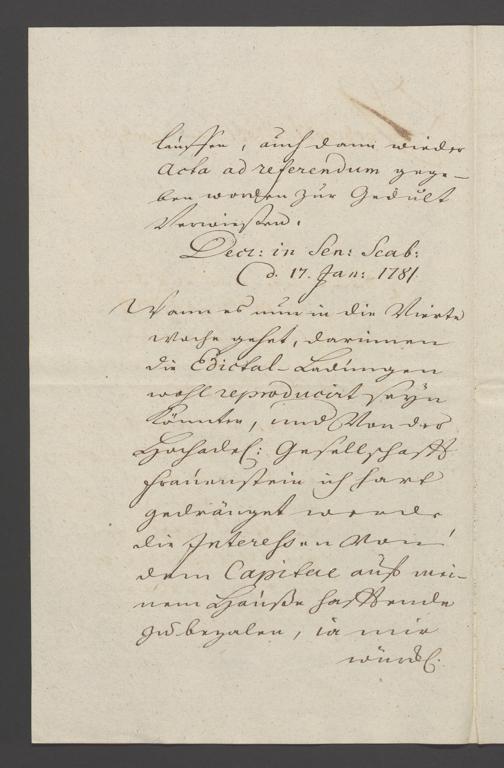 lauffen, auch dann wieder
acta ad referendum gege-
ben worden zur Gedult
Verwiesen.
Decr: in Sen: Scab:
d. 17. Jan: 1781.
Wann es nun in die Vierte
Woche gehet, darinnen
die Edictal-Ladungen
wohl reproducirt seyn
könnten, und Von der
Hochadel: Gesellschafft
Frauenstein ich hart
gedränget werde
die Interessen Von
dem Capitae auß mei-
nem Hauße hafftende
zu bezalen, ja mir
würckl.